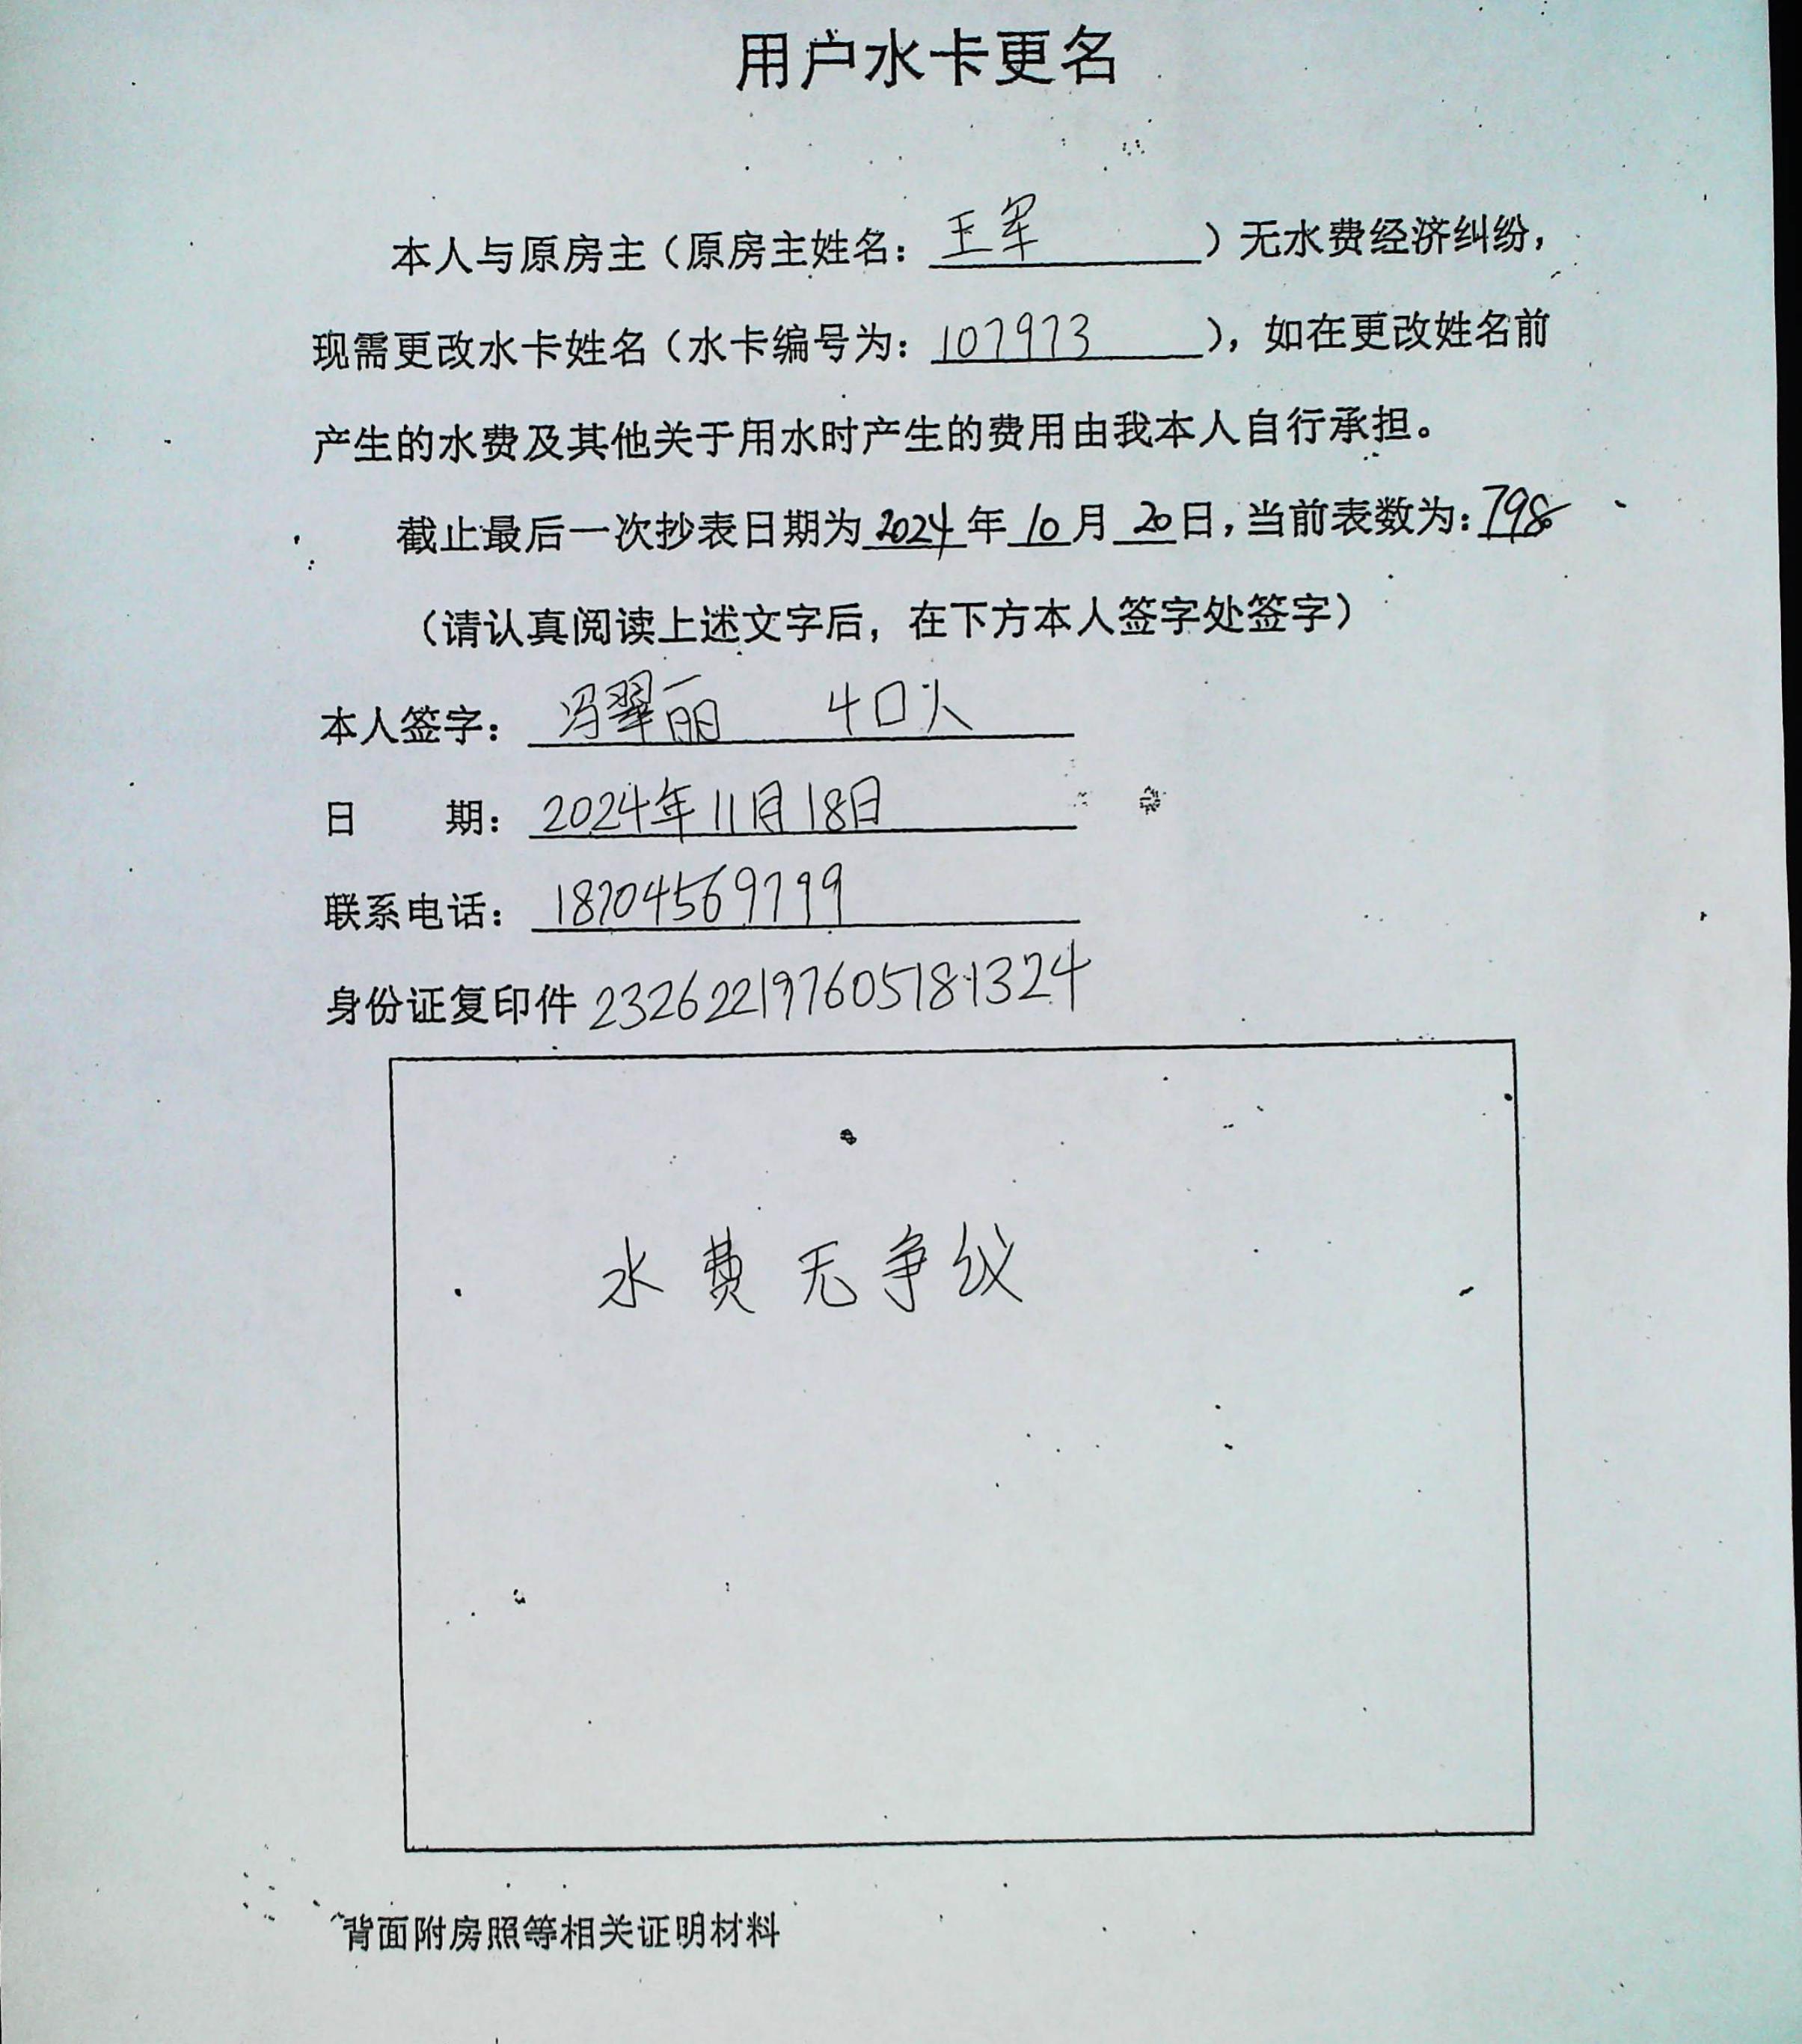 用户水卡更名
本人与原房主（原房主姓名：王军）无水费经济纠纷，
现需更改水卡姓名（水卡编号为：107973），如在更改姓名前
产生的水费及其他关于用水时产生的费用由我本人自行承担。
截止最后一次抄表日期为2024年10月20日，当前表数为：798
（请认真阅读上述文字后，在下方本人签字处签字）
本人签字：冯翠丽 4口人
日期：2024年11月18日
联系电话：18704569799
身份证复印件 232622197605181324
水费无争议
背面附房照等相关证明材料